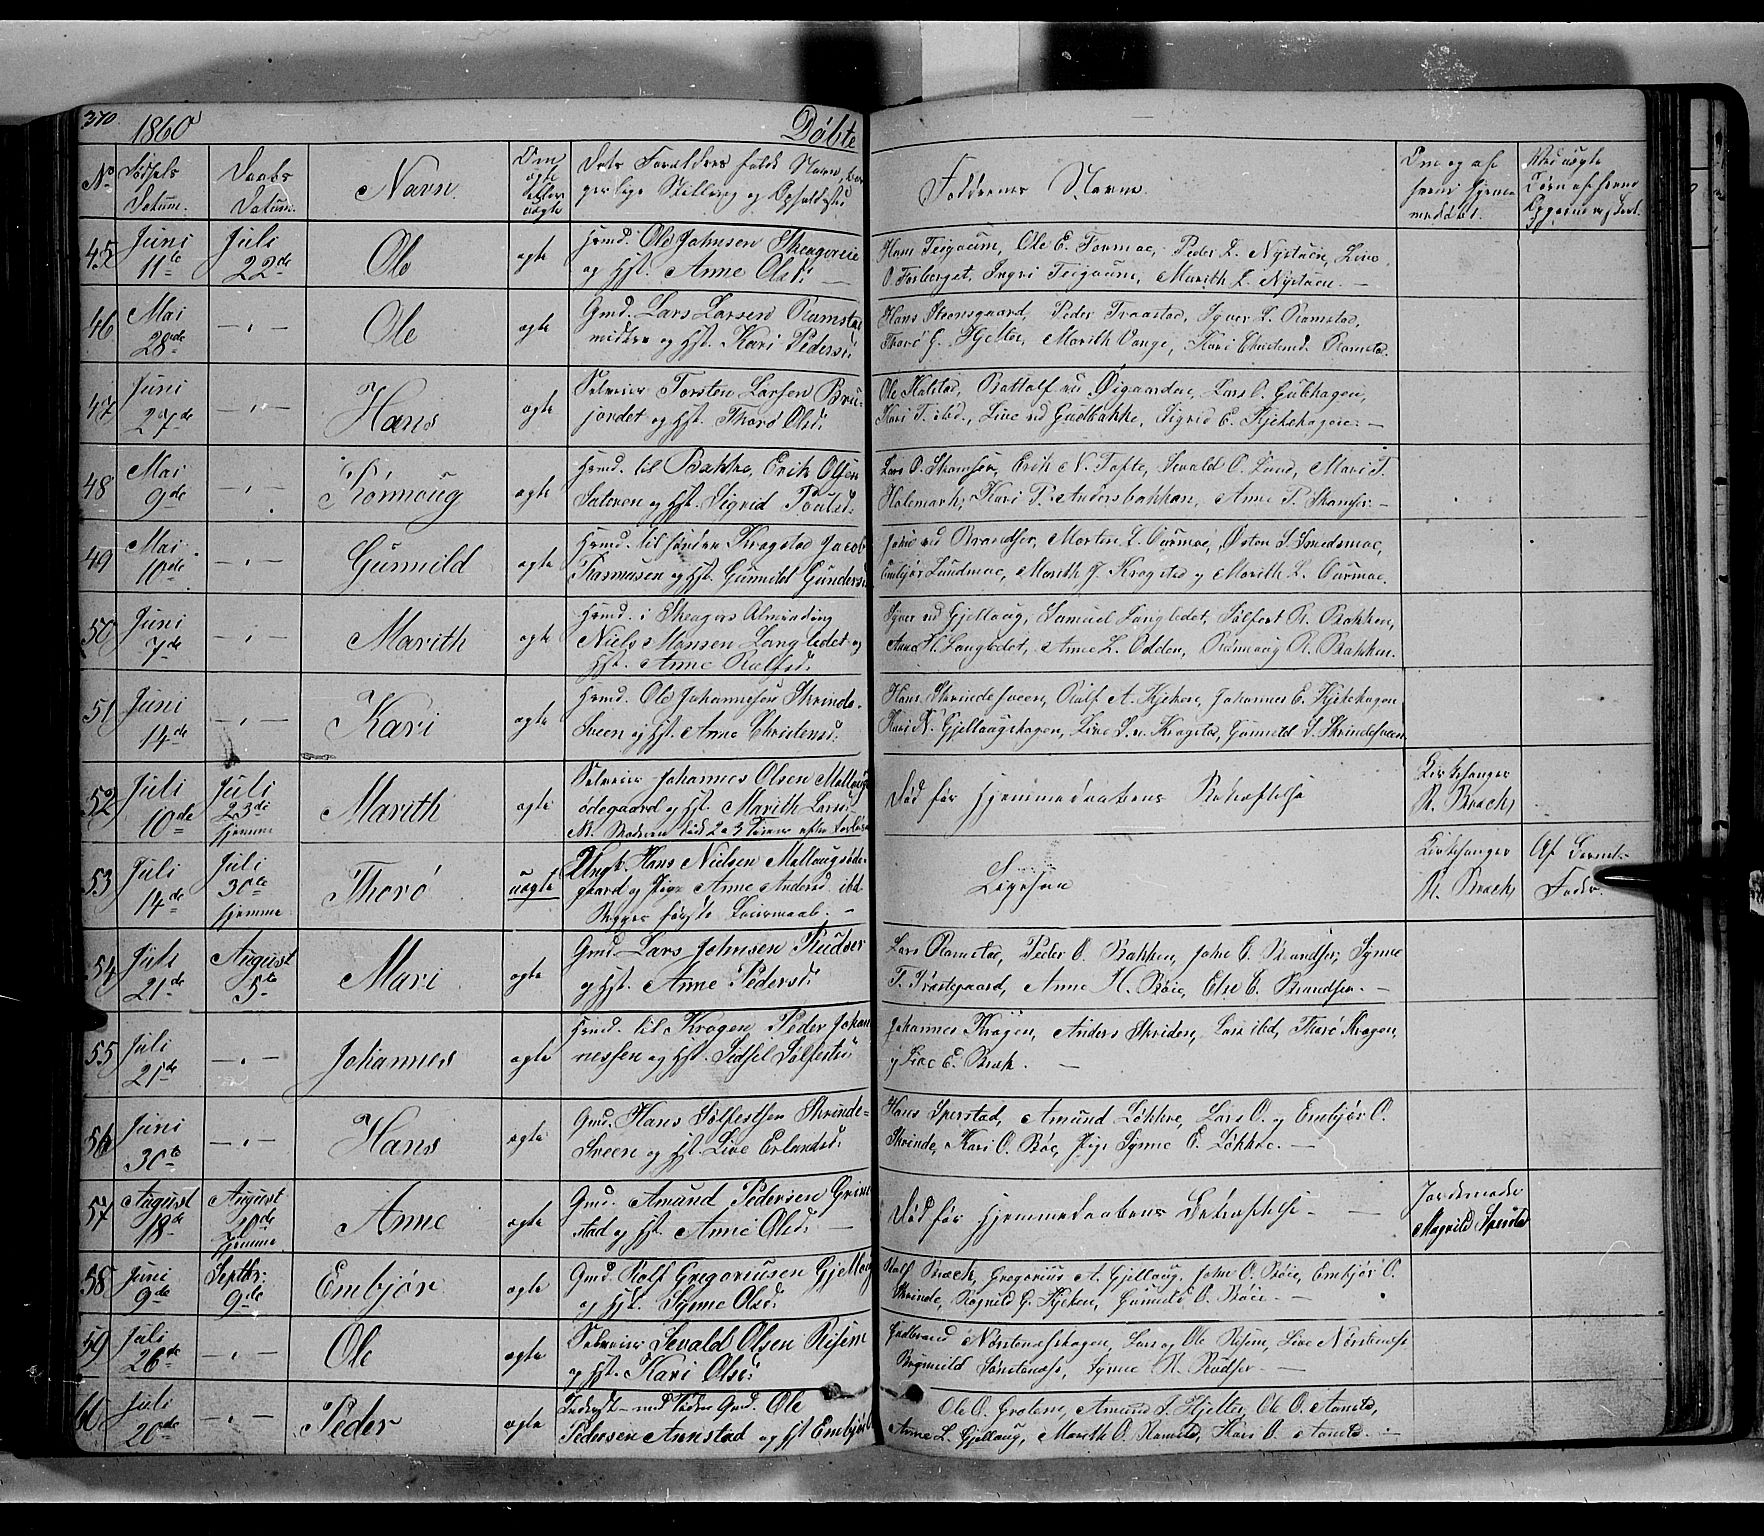 370. 1860 Døbte
No Fødsels Datum. Daabs Datum. Navn Om ægte eller uægte Dets Forældres fulde Navn, borgerlige Stilling og Opholdssted Faddernes Navne. Om og af hvem hjemmedøbt. Ved uægte Børn af hvem
45 Juni 11te Juli 22de Ole ægte Huusmd. Ole Johnsen
og Hst. Anne Olsd:
Hans Teigaum, Ole E. Formoe, Peder L. Nystuen, Live
O. Forberget, Ingri Teigaum, Marith L. Nystuen. —
46 Mai 28de —"— Ole ægte Gmd. Lars Larsen Ramstad
og Hst. Kari Pedersd:
Hans Skonsgaard, Peder Traastad, Syver L. Ramstad,
Thorø G. Hjelle, Marith Vange, Kari Christensd. Ramstad.
47 Juni 27de —"— Hans ægte Selveier Torsten Larsen Bru-
jordet og Hst. Thorø Olsd:
Ole Kolstad, Battolf ved Øigaarden, Lars O. Gubhagen,
Kari Live ved Gudbakke, Sigrid E. Kjekshagen. —
48 Mai 9de —"— Rønnoug ægte Huusmd. til Bakke, Erik Olsen
og Hst. Sigrid Poulsd:
Lars O. Skamsar, Erik N. Tofte, Sevald O. Lund, Mari T.
Holemark, Kari P. Andersbakken, Anne P. Skamsar. —
49 Mai 10de —"— Gunnild ægte Huusmd. til søndre Krogstad Jacob
Rasmusen og Hst. Gunnild Gundersd
John ved Brandser, Morten L. Ourmoe, Østen S. Smedsmoe,
Embjør Lundmoe, Marith J. Krogstad og Marith L. Ourmoe.
50 Juni 7de —"— Marith ægte Huusmd. i Skeagers Almending
Niels Monsen Langledet og
Hst. Anne Rolfsd:
Syver ved Gjellaug, Samuel Langledet, Sølfest R. Bakken,
Anne H. Langledet, Anne L. Odden, Rønnaug R. Bakken.
51 Juni 14de —"— Kari ægte Huusmd. Ole Johannesen Skrinde-
Sveen og Hst. Anne Christensd:
Hans Skrindesveen, Rolf A. Kjeken, Johannes E. Kjekshagen
Kari N. Gjellaugshagen, Live J. n. Krogstad, Gunnild S. Skrindesveen
52 Juli 10de Juli 23de hjemme Marith ægte Selveier Johannes Olsen Mellaugs-
ødegaard og Hst. Marith Larsd:
NB. Moderen døde 2 a 3 Timer efter
Død før Hjemmedaabens Bekræftelse Kirkesanger
R. Braek
53 Juli 14de Juli 30te hjemme Thorø uægte Ungk. Hans Nielsen Mellaugsøde-
gaard og Pige Anne Andersd. ibd.
Begges første Leiermaal. —
Ligesaa Kirkesanger
R. Braek Af Barnets
Fader.
54 Juli 21de August 5te Mari ægte Gmd. Lars Johnsen Rudser
og Hst. Anne Pedersd:
Lars Ramstad, Peder O. Bakken, John O. Brandser, Synne
T. Prestegaard, Anne H. Bøie, Else E. Brandser. —
55 Juli 21de —"— Johannes ægte Huusmd. til Krogen Peder Johan
nessen og Hst. Sidsel Sølfestd:
Johannes Krogen, Anders Skriden, Lars ibid, Thorø Krogen,
og Live E. Braek. —
56 Juni 30te —"— Hans ægte Gmd. Hans Sølfestsen Skrinde-
Sveen og Hst. Live Erlandsd:
Hans Sperstad, Amund Løkkre, Lars O. og Embjør O.
Skrinde, Kari O. Bøe, Pige Synne E. Løkkre. —
57 August 18de August 19de hjemme Anne ægte Gmd. Amund Pedersen Grim
stad og Hst. Anne Olsd: —
Død før Hjemmedaabens Bekræftelse. — Jordemoder
Magnild Sperstad
58 Juni 9de Septbr: 9de Embjør ægte Gmd. Rolf Gregoriusen Gjellaug
og Hst. Synne Olsd:
Rolf Braek, Gregorius A. Gjellaug, John O. Bøie, Embjør O.
Skrinde, Ragnild G. Kjeken, Gunnild O. Bøie. —
59 Juli 26de —"— Ole ægte Selveier Sevald Olsen Risem
og Hst. Kari Olsd:
Gudbrand Nørstenæshagen, Lars og Ole Risem, Live Nørstenæs
Ragnild Sørstenæs, Synne R. Rudser. —
60 Juli 20de —"— Peder ægte Gmd. Ole
Pedersen Aanstad og Hst Embjør
Ole O. Grotene, Amund J. Hjelle, Ole O. Aanstad,
Anne L. Gjellaug, Marith O. Ramstad, Kari O. Aanstad. —